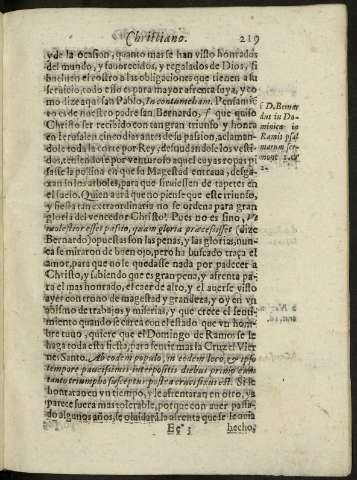 Christiano. 219
y de la ocasion, quanto mas se han visto honrados
del mundo, y fauorecidos, y regalados de Dios, si
bueluen el rostro a las obligaciones que tienen a su
seruicio, todo esso es para mayor afrenta suya, y co
mo dize aqui san Pablo, In contumeliam. Pensamie
to es de nuestro padre san Bernardo, que quiso
Christo ser recibido con tan gran triunfo y honra
en Ierusalen cinco dias antes de su passion, aclaman
dole toda la corte por Rey, desnudandose los vesti-
dos, teniendose por venturoso aquel cuyas ropas pi
sasse la pollina en que su Magestad entraua, desga-
xan los arboles, para que siruiessen de tapetes en
el suelo. Quien aurà que no piense que este triunfo,
y fiesta tan extraordinaria no se ordena para gran
gloria del vencedor Christo? Pues no es sino, Vt
molestior esset passio, quam gloria præcesisset (dize
Bernardo) opuestas son las penas, y las glorias, nun-
ca se miraron de buen ojo, pero ha buscado traça el
amor, para que no le quedasse nada por padecer a
Christo, y sabiendo que es gran pena, y afrenta pa-
ra el mas honrado, el caer de alto, y el auerse visto
ayer con trono de magestad y grandeza, y oy en vn
abismo de trabajos y miserias, y que crece el senti-
miento quando se carea con el estado que vn hom-
bre tuuo, quiere que el Domingo de Ramos se le
haga toda esta fiesta, para sentir mas la Cruz el Vier
nes Santo. Ab eodem populo, in eodem loco, & ipso
tempore paucissimis interpositis diebus primò cum
tanto triumpho susceptus, postea crucifixus est. Si le
honraran en vn tiempo, y le afrentaran en otro, ya
parece fuera mas tolerable, porque con auer passa-
do algunos años, se oluidara la afrenta que se le auia
Ee 3 hecho,
D. Bernar
dus in Do-
minica in
Ramis psal
marum ser-
mone
2.